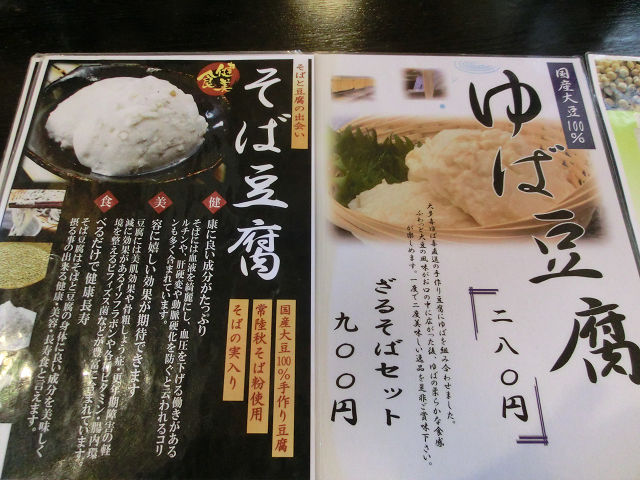 国産大豆100%
ゆば豆腐
二八〇円
ゆば豆腐にゆばを組み合わせました。
ふわっと大豆の風味がお口の中に広がった後、ゆばの柔らかな食感
が楽しめます。一度で二度美味しい逸品を是非ご賞味下さい。
ざるそばセット
九〇〇円
そばと豆腐の出会い
健美食
そば豆腐
国産大豆100%手作り豆腐
常陸秋そば粉使用
そばの実入り
健 康に良い成分がたっぷり
そばには血液を綺麗にし、血圧を下げる働きがある
ルチンや、肝硬変や動脈硬化を防ぐと云われるコリ
ンも多く含まれています。
美 容に嬉しい効果が期待できます
豆腐には美肌効果や骨粗しょう症・更年期障害の軽
減に効果があるイソフラボンや各種ビタミン、腸内環
境を整えるビフィズス菌などが豊富に含まれています。
食 べるだけで健康長寿
そば豆腐はそばと豆腐の身体に良い成分を美味しく
摂る事の出来る健康・美容・長寿食と言えます。